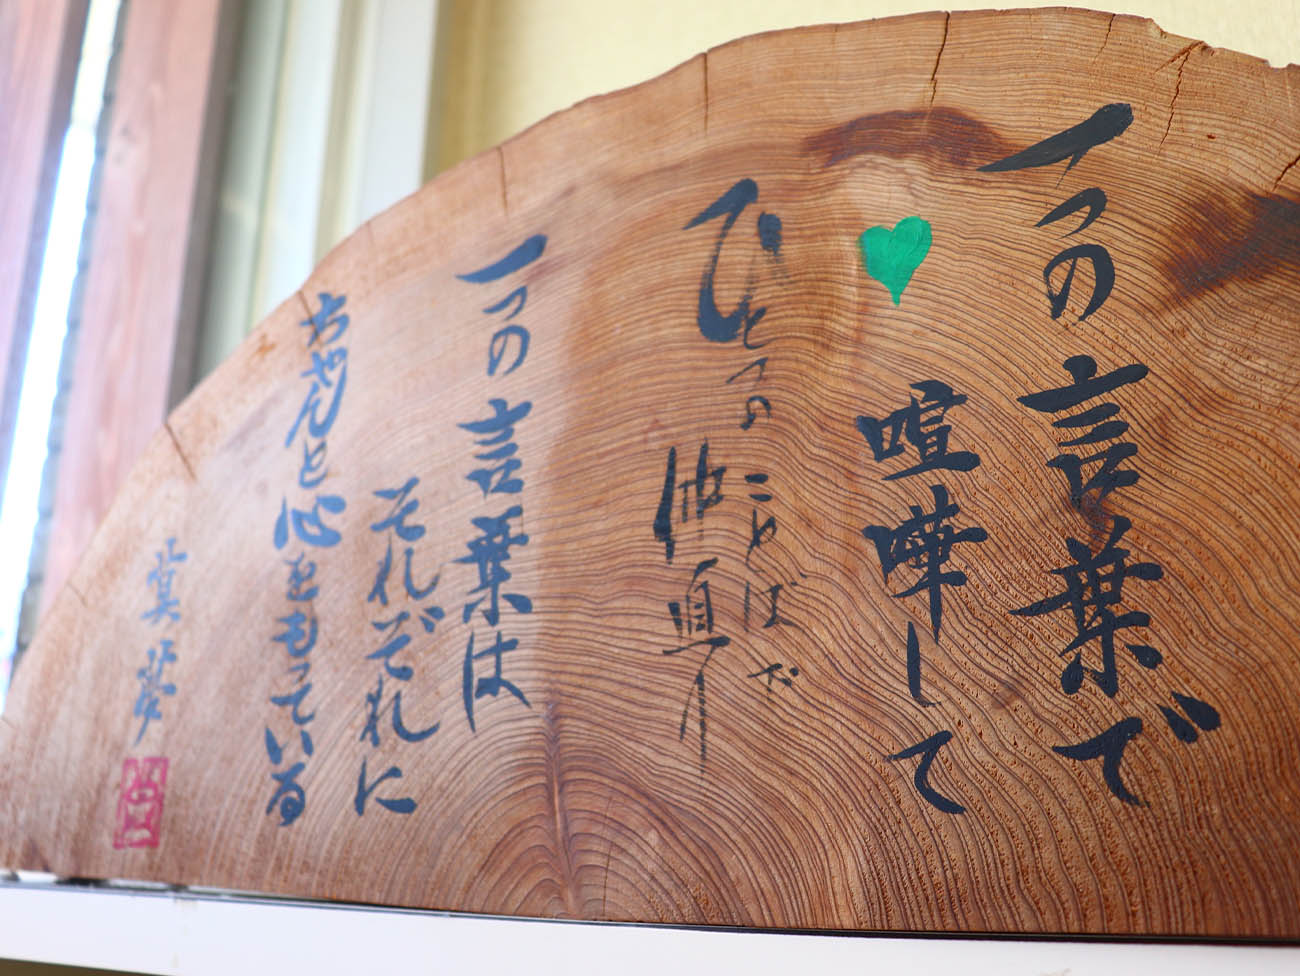 一つの言葉で
喧嘩して
ひとつのことばで
仲直り
一つの言葉は
それぞれに
ちゃんと心をもっている